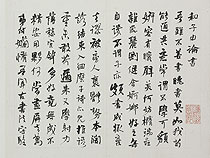 和子由論書
吾雖不善書曉書莫如我苟
能通其意常謂不學可貌
妍容有矉璧美何妨橢端
莊雜流麗剛健含婀娜好之
每自譏不謂子亦頗書成輒棄
去謬被旁人裹體勢本闊
略結束入細麼子詩亦見推
語重未敢荷邇來又學射力
薄愁官笴多好竟無成不精
安用夥何當盡屏去萬
事付懶惰吾聞古書法守駿